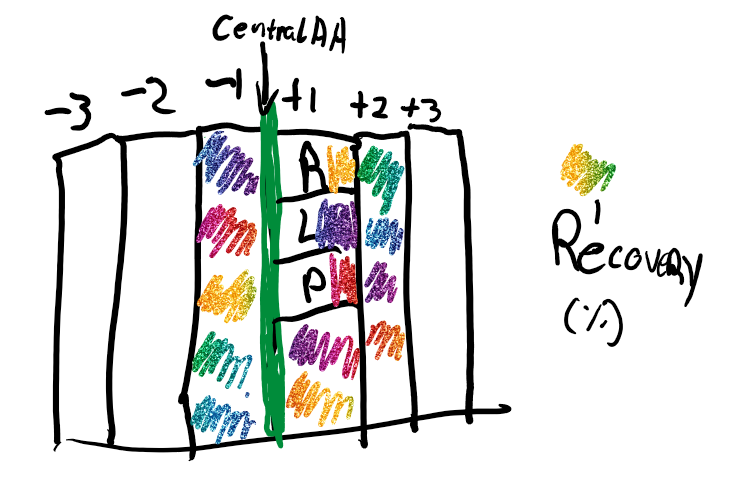 Central AA
-3 -2 -1 +1 +2 +3
A
L
P
Recovery
(%)